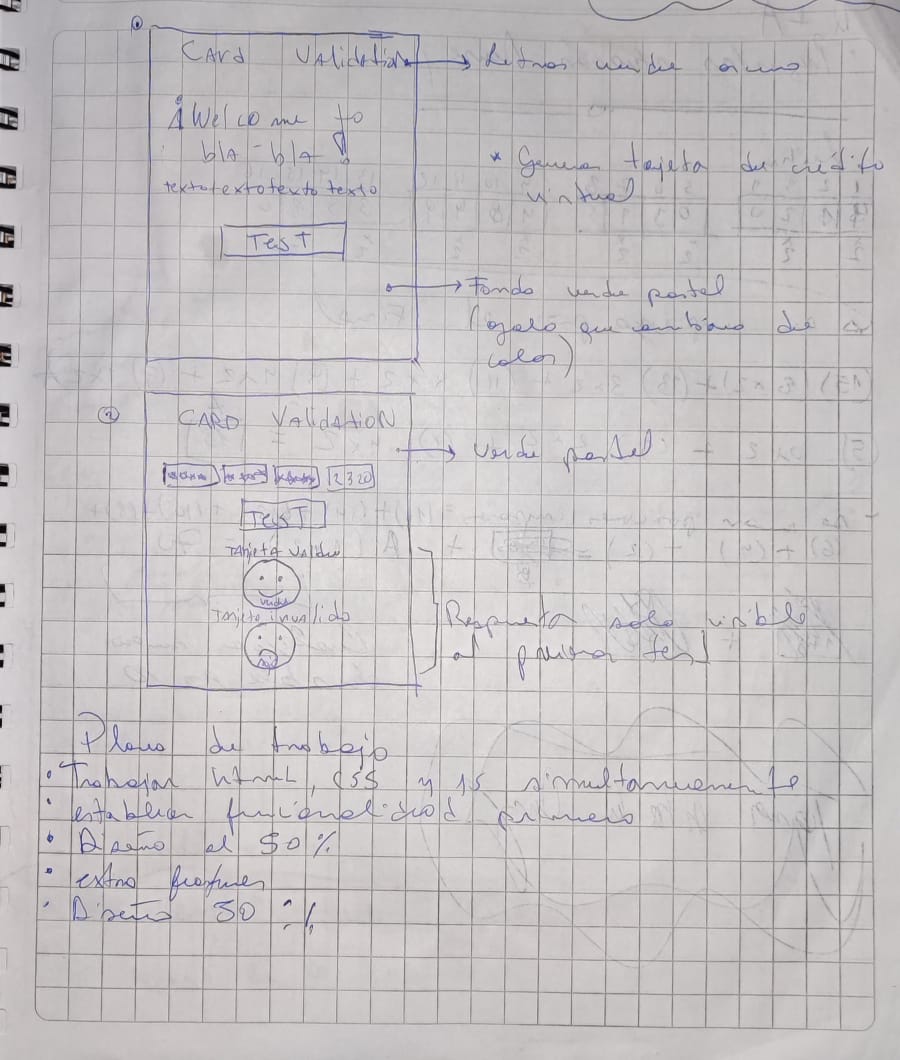 ①
Card Validation → Letras verde oscuro
¡Welcome to
bla-bla!
textotextotexto texto
Test
* Generar tarjeta de crédito
virtual
→ Fondo verde pastel
(ojalo que cambiara de
color)
②
CARD VALidAtioN
→ Verde pastel
2320
TesT
Tarjeta valida
Tarjeta invalida
Respuesta solo visible
al
test
Plano de trabajo
• Trabajar html, CSS y JS simultaneamente
• establecer funcionalidad primero
• Diseño al 50%
• extra features
• Diseño 50 %